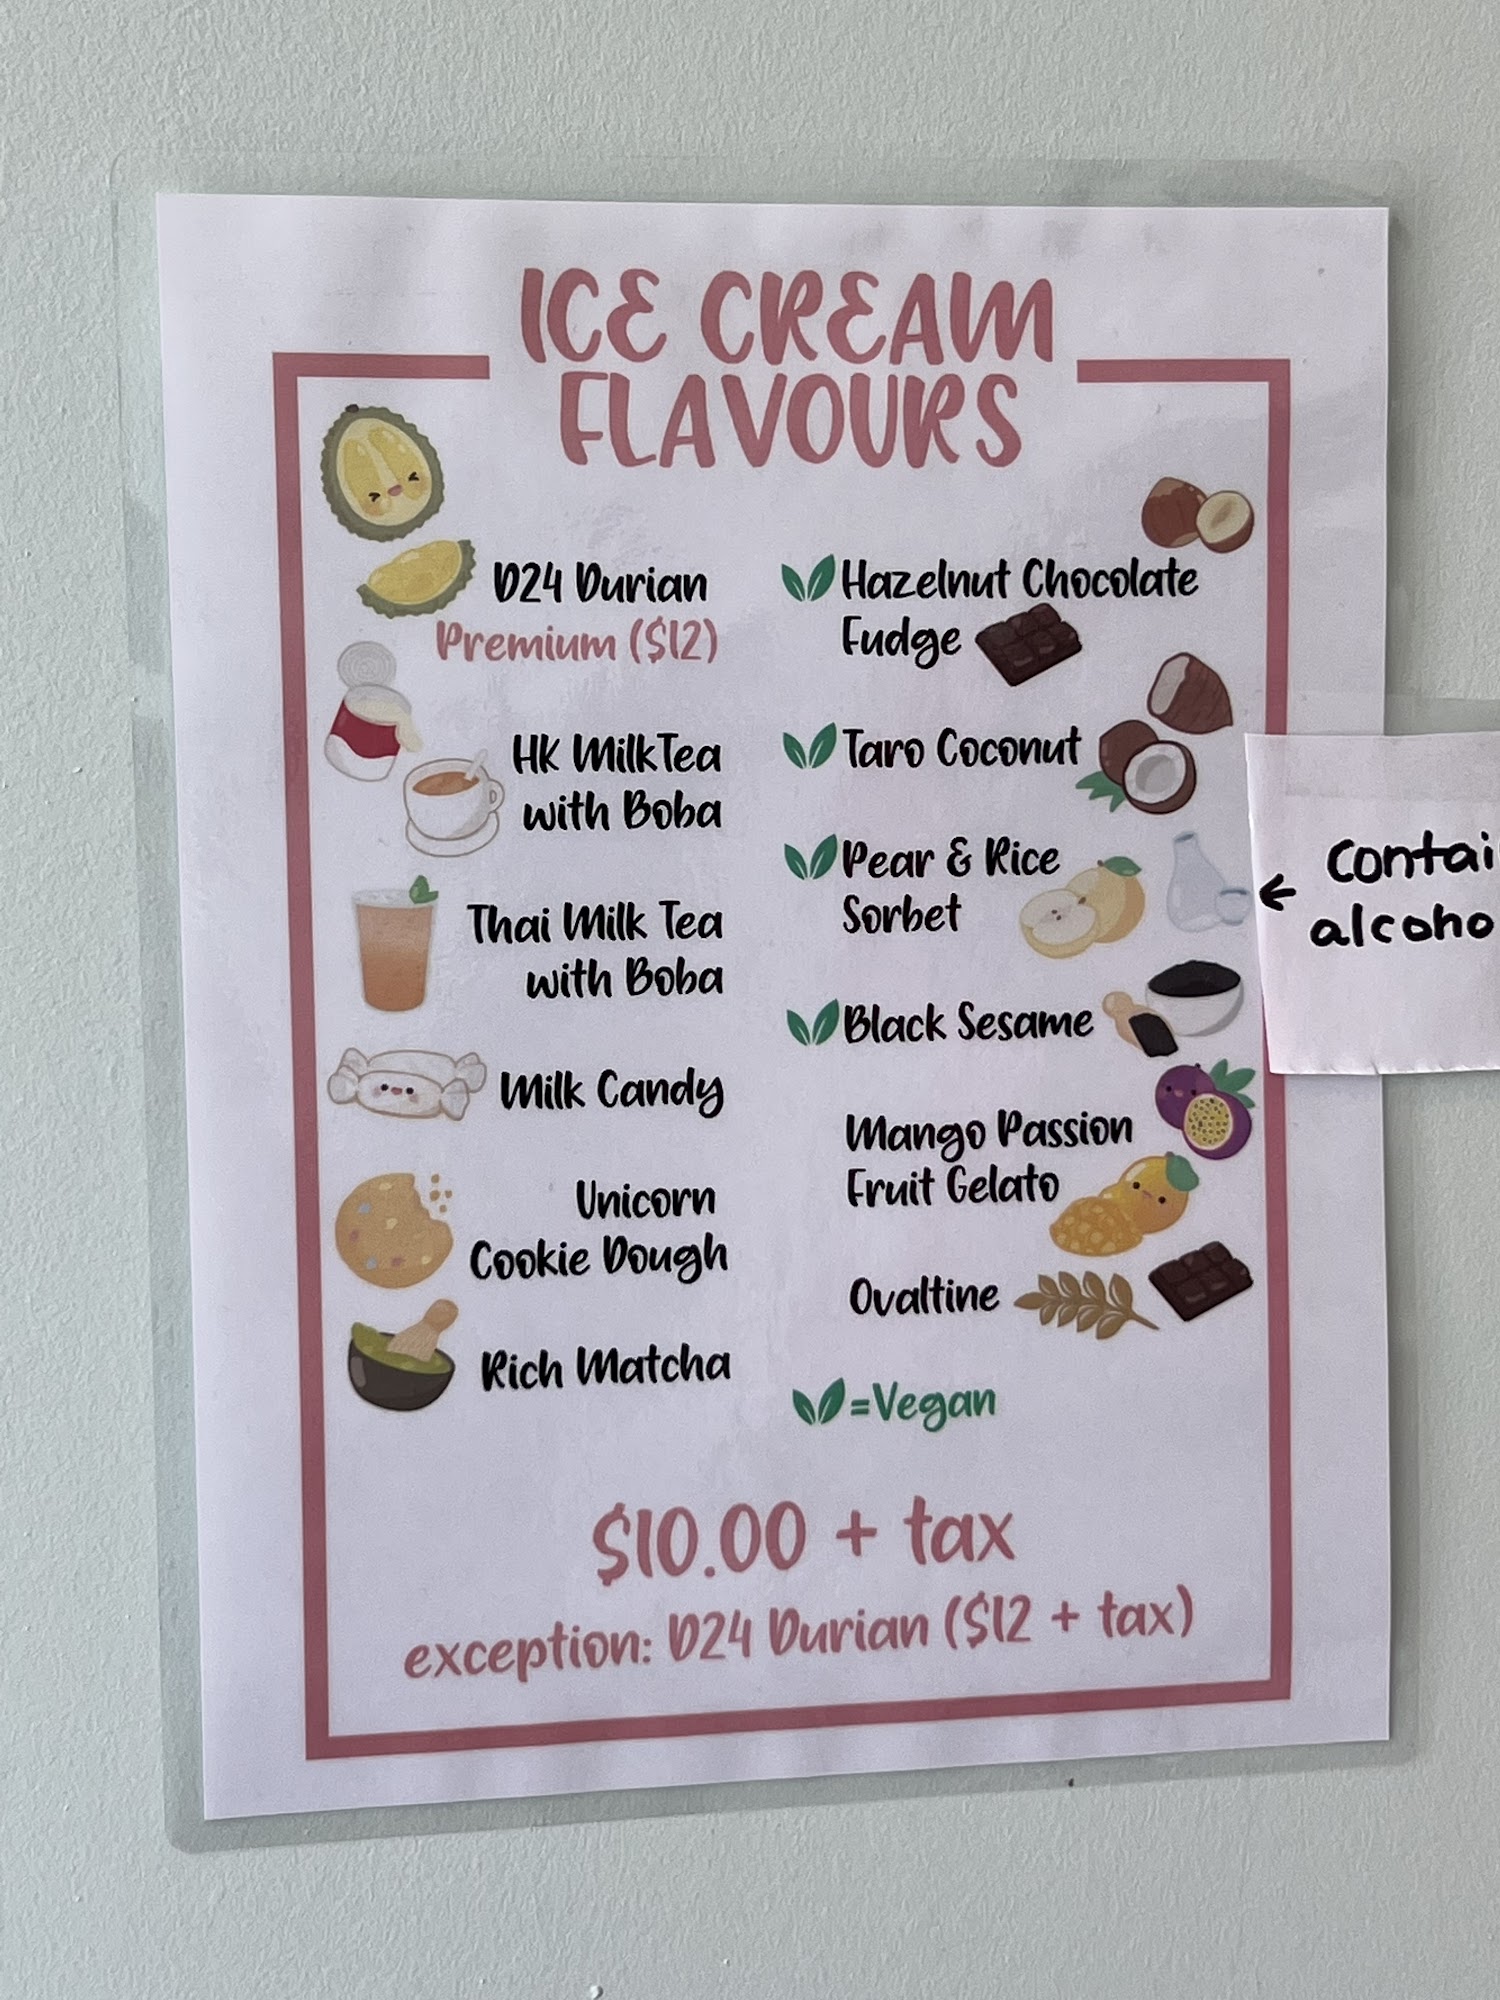 ICE CREAM
FLAVOURS
D24 Durian
Premium ($12)
HK MilkTea
with Boba
Thai Milk Tea
with Boba
Milk Candy
Unicorn
Cookie Dough
Rich Matcha
Hazelnut Chocolate
Fudge
Taro Coconut
Pear & Rice
Sorbet
Black Sesame
Mango Passion
Fruit Gelato
Ovaltine
=Vegan
← contai
alcoho
$10.00 + tax
exception: D24 Durian ($12 + tax)